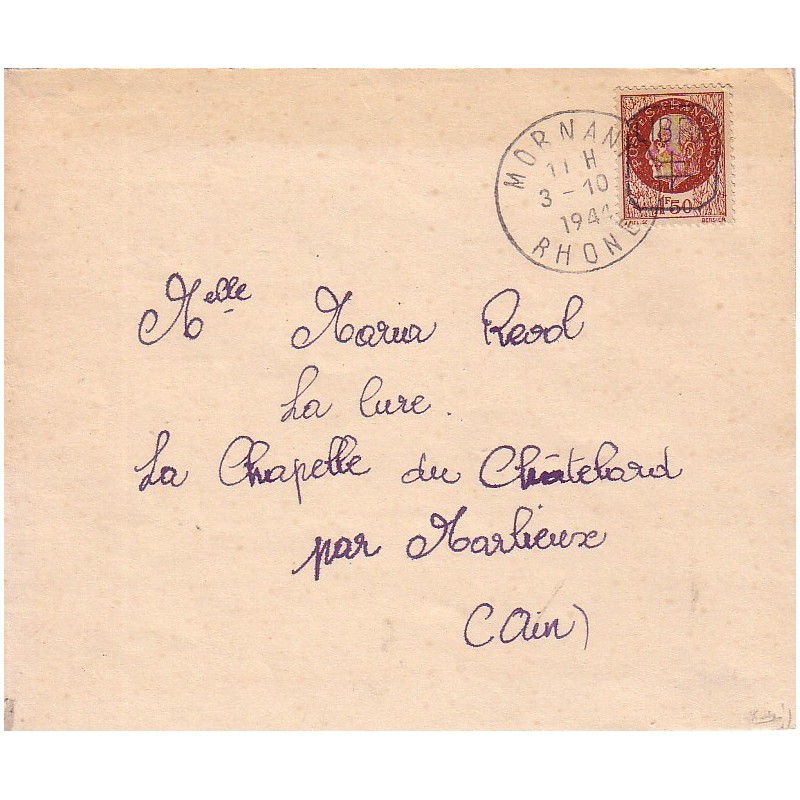 MORNANT
11 H
3 - 10
1944
RHONE
POSTES FRANÇAISES
1F50
BERSIER
Melle Maria Revol
La Cure.
La Chapelle du Châtelard
par Marlieux
(Ain)